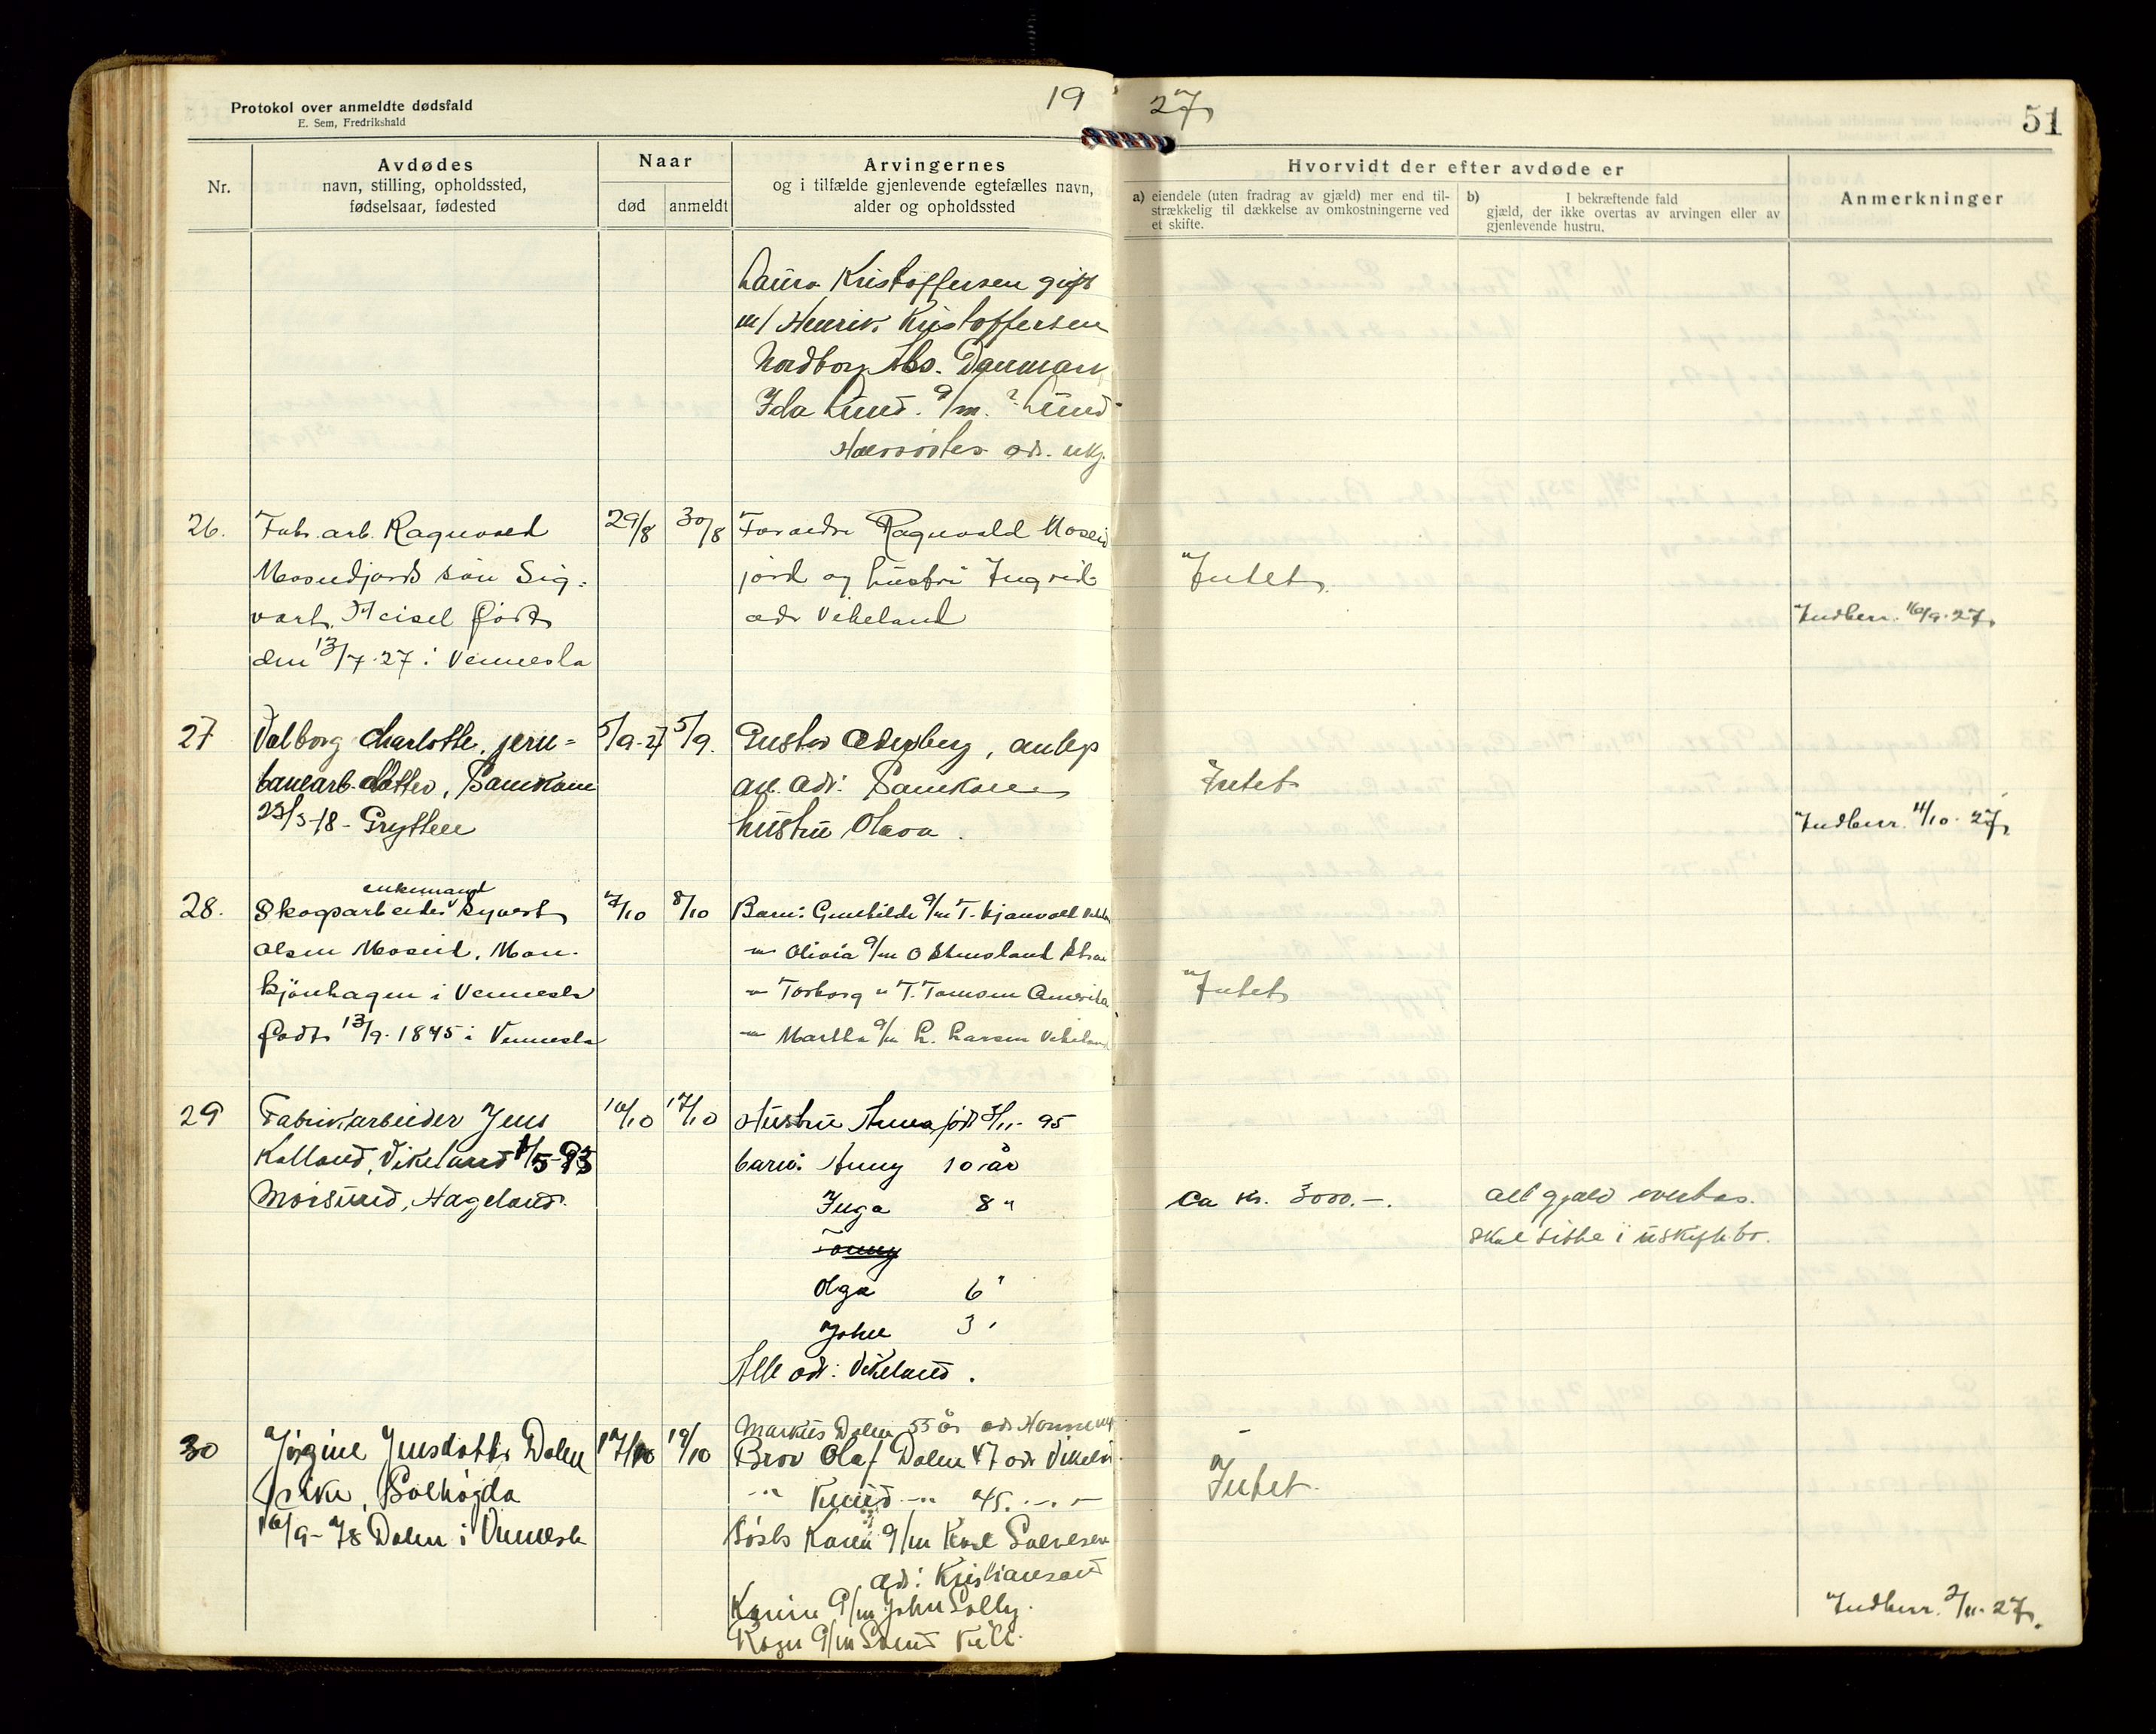 Protokol over anmeldte dødsfald
E. Sem, Fredrikshald
19 27
51
Nr.
Avdødes
navn, stilling, opholdssted,
fødselsaar, fødested
Naar
død
anmeldt
Arvingernes
og i tilfælde gjenlevende egtefælles navn,
alder og opholdssted
Hvorvidt der efter avdøde er
a) eiendele (uten fradrag av gjæld) mer end til-
strækkelig til dækkelse av omkostningerne ved
et skifte.
b) I bekræftende fald
gjæld, der ikke overtas av arvingen eller av
gjenlevende hustru.
Anmerkninger
Laura Kristoffersen gift
m/ Henrik Kristoffersen
Nordborg Als. Danmark
Ida Lund. g/m. ? Lund
adr. ukj.
26.
Fabr. arb. Ragnvald
Moseidjords søn Sig-
vart. født
den 13/7.27 i Vennesla
29/8
30/8
Foreldre Ragnvald Moseid
jord og hustru Ingrid
adr Vikeland
Intet
Indberr. 16/9.27.
27
Valborg Charlotte, jern-
banearb. datter, Samkom
23/3-18 - Grytten
5/9.27
5/9.
Gustav
adr: Samkom
hustru Olava.
Intet
Indberr. 11/10. 27.
28.
enkemand
Skogsarbeider Syvert
Olsen Moseid, Mon.
kjønhagen i Vennesla
født 13/9. 1845 i Vennesla
7/10
8/10
Barn: Gunhilde g/m T.
" Olivia g/m O
" Torborg " T. Amerika
" Martha g/m L. Larsen Vikeland
Intet
29
Fabrikarbeider Jens
Kalland, Vikeland 1/5-93
Hageland.
16/10
17/10
Hustru Anna født 95
barn: Anny 10 år
Inga 8 "
Tonny
Olga 6 "
John 3 "
Alle adr: Vikeland.
ca kr. 3000.-.
all gjæld overtas.
skal sitte i uskift bo.
30
Jørgine Jensdatter Dalen
pike, Solhøgda
16/9-78 Dalen i Vennesla
17/10
19/10
Markus Dalen 55 år adr
Bror Olaf Dalen 47 adr Vikeland
" Knud " 45. " "
Søster Karen g/m Karl Salvesen
adr: Kristiansand
Karine g/m John Solby.
g/m
Intet.
Indberr. 2/11.27.